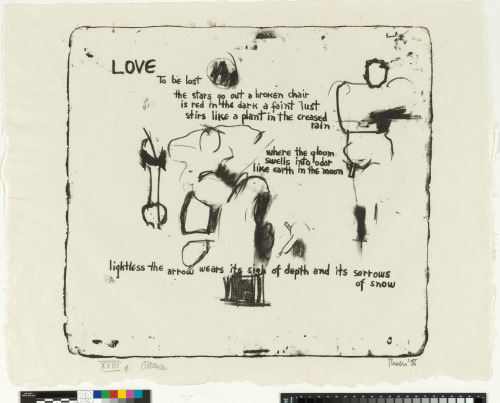 LOVE
To be lost
the stars go out a broken chair
is red in the dark a faint lust
stirs like a plant in the creased
rain
where the gloom
swells into odor
like earth in the moon
lightless the arrow wears its sigh of depth and its sorrows
of snow
XVIII
O'Hara
Rivers '58